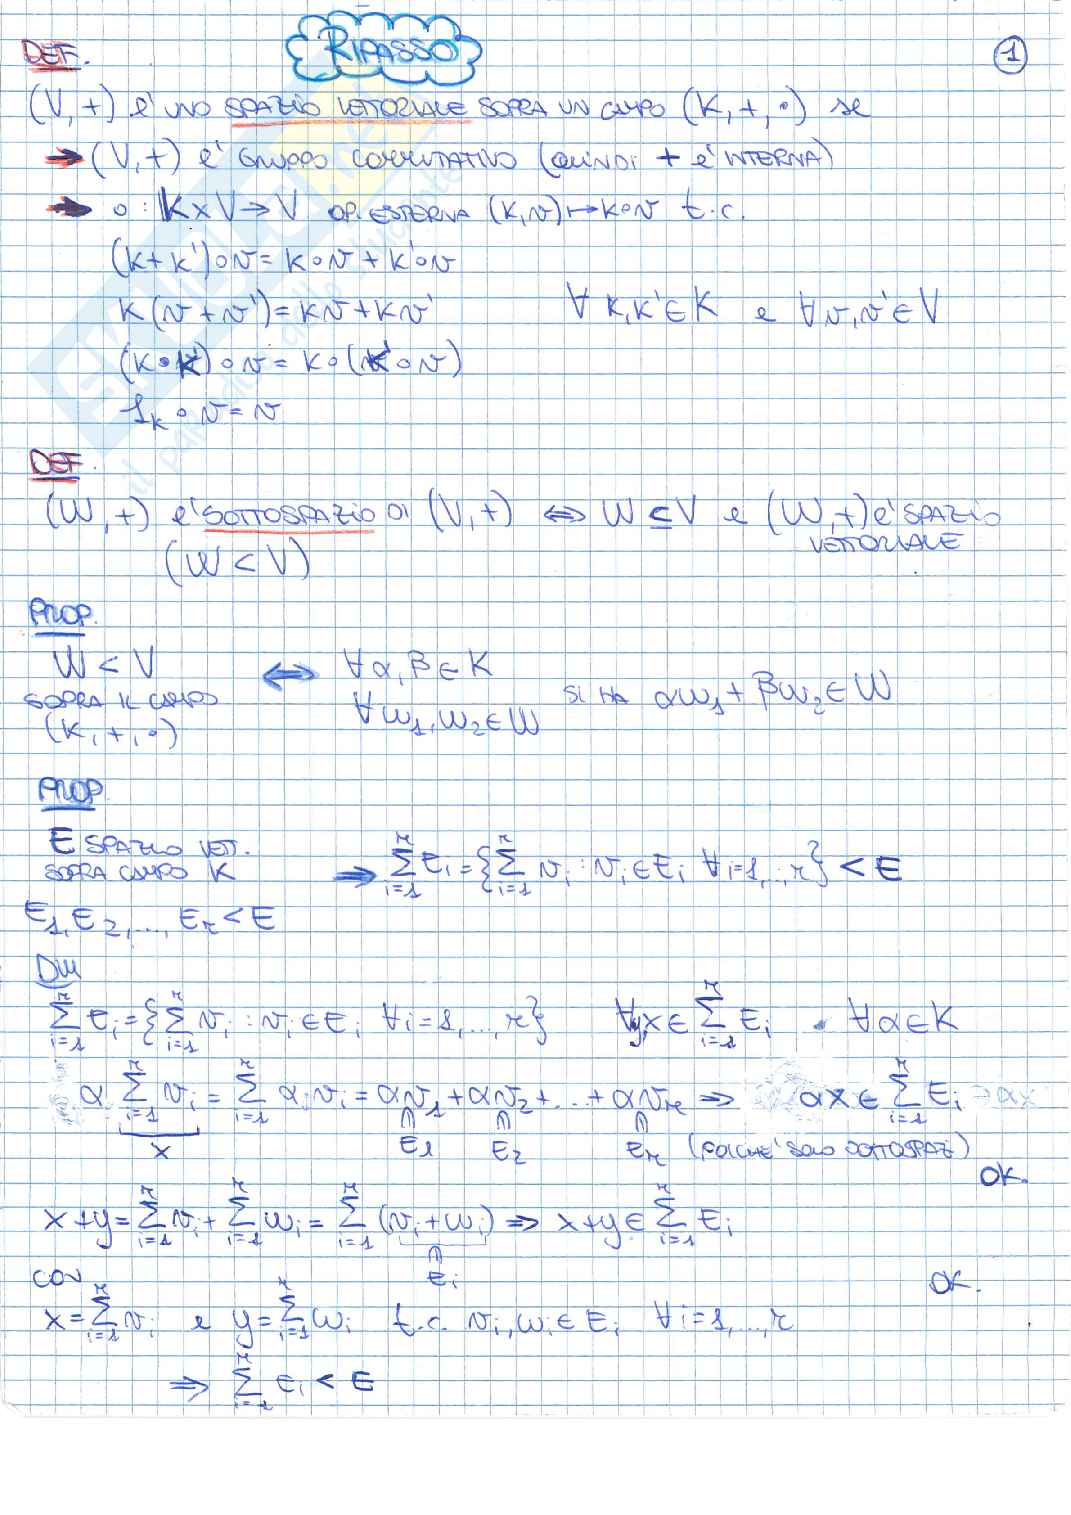 RIPASSO
1
DEF.
(V,+) è UNO SPAZIO VETTORIALE SOPRA UN CAMPO (K,+,·) se
→ (V,+) è GRUPPO COMMUTATIVO (QUINDI + è INTERNA)
→ ∘ : K×V→V OP. ESTERNA (k,v)↦k∘v t.c.
(k+k')∘v = k∘v + k'∘v
k(v+v') = kv+kv' ∀ k,k'∈K e ∀v,v'∈V
(k·k')∘v = k∘(k'∘v)
1_K∘v = v
DEF.
(W,+) è SOTTOSPAZIO DI (V,+) ⇔ W⊆V e (W,+) è SPAZIO
(W<V) VETTORIALE
PROP.
W<V ⇔ ∀α,β∈K
SOPRA IL CAMPO ∀w₁,w₂∈W SI HA αw₁+βw₂∈W
(K,+,·)
PROP
E SPAZIO VETT.
SOPRA CAMPO K ⇒ ∑_{i=1}^r E_i = {∑_{i=1}^r v_i : v_i∈E_i ∀i=1,..,r} < E
E₁,E₂,...,E_r<E
DIM
∑_{i=1}^r E_i = {∑_{i=1}^r v_i : v_i∈E_i ∀i=1,...,r} ∀y,x∈∑_{i=1}^r E_i ∀α∈K
α ∑_{i=1}^r v_i = ∑_{i=1}^r α v_i = αv₁+αv₂+...+αv_r ⇒ αx∈∑_{i=1}^r E_i
x ∈E₁ ∈E₂ ∈E_r (POICHÈ SONO SOTTOSPAZI)
OK.
x+y = ∑_{i=1}^r v_i + ∑_{i=1}^r w_i = ∑_{i=1}^r (v_i+w_i) ⇒ x+y∈∑_{i=1}^r E_i
∈E_i
CON OK.
x=∑_{i=1}^r v_i e y=∑_{i=1}^r w_i t.c. v_i,w_i∈E_i ∀i=1,...,r
⇒ ∑_{i=1}^r E_i < E